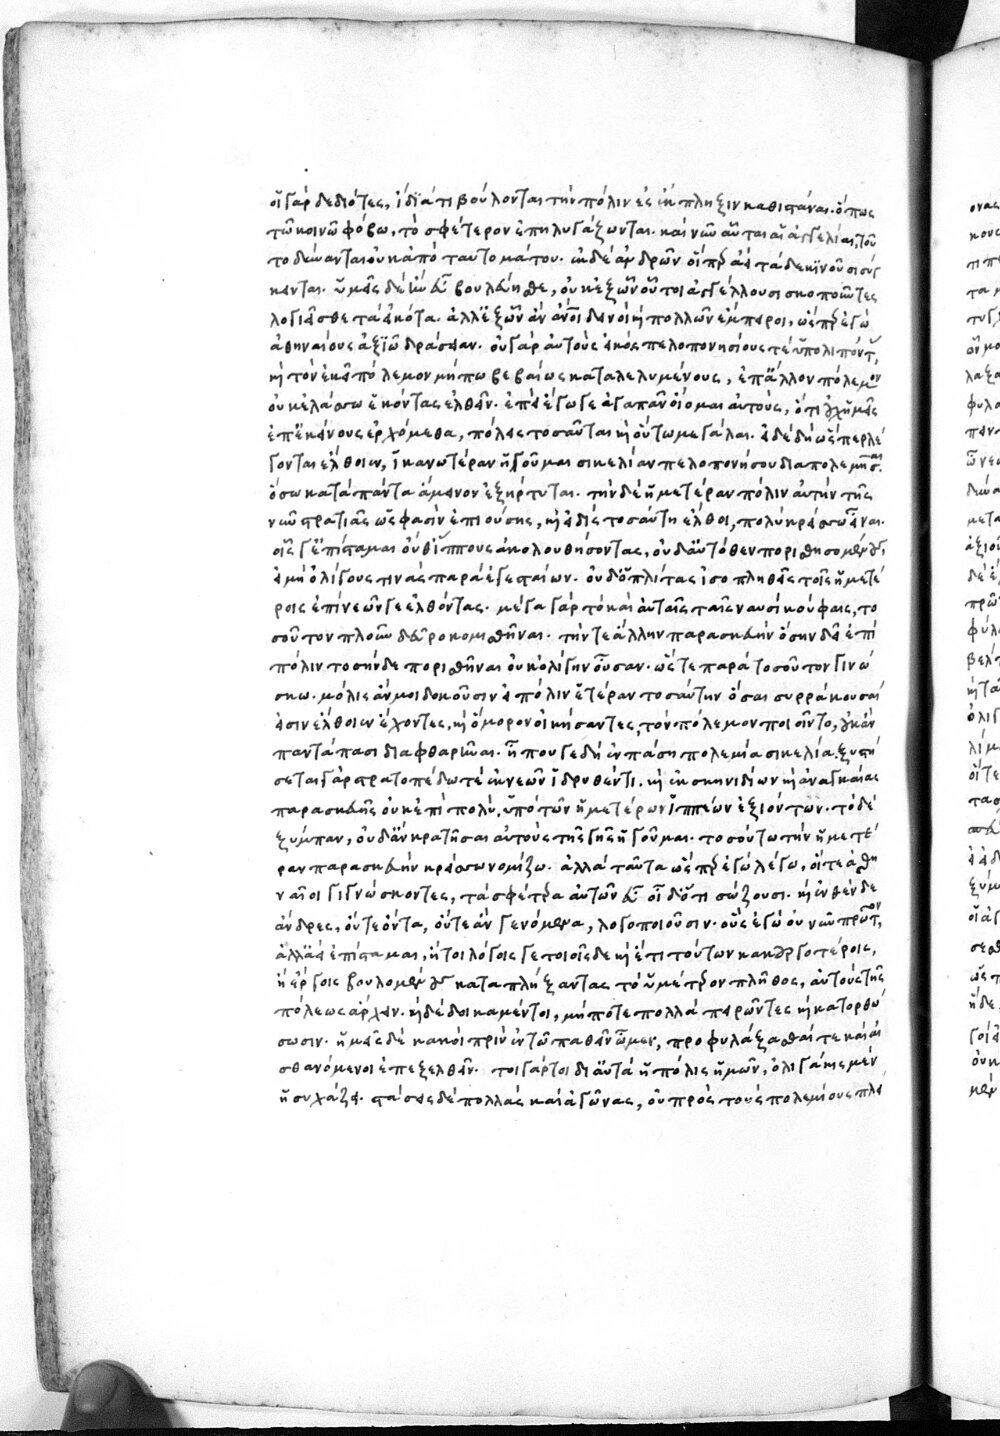 οἱ γὰρ δεδιότες, ἰδίᾳ τι βούλονται τὴν πόλιν ἐς ἔκπληξιν καθιστάναι. ὅπως
τῶ κοινῶ φόβω, τὸ σφέτερον ἐπηλυγάζωνται. καὶ νῦν αὗται αἱ ἀγγελίαι, τοῦτο
το δύνανται οὐκ ἀπὸ ταυτομάτου. ἐκ δὲ ἀνδρῶν οἵπερ ἀεὶ τάδε κινοῦσι σύγ
κεινται. ὑμεῖς δὲ ἢν εὖ βουλεύησθε, οὐκ ἐξ ὧν οὗτοι ἀγγέλλουσι σκοποῦντες
λογιεῖσθε τὰ εἰκότα. ἀλλ' ἐξ ὧν ἂν ἄνοι δεινοὶ καὶ πολλῶν ἔμπειροι, ὥσπερ ἐγὼ
ἀθηναίους ἀξιῶ δράσειαν. οὐ γὰρ αὐτοὺς εἰκὸς πελοπονησίους τε ὑπολιπόντ
καὶ τὸν ἐκεῖ πόλεμον μήπω βεβαίως καταλελυμένους, ἐπ' ἄλλον πόλεμον
οὐκ ἐλάσσω ἑκόντας ἐλθεῖν. ἐπεὶ ἔγωγε ἀγαπᾶν οἴομαι αὐτοὺς, ὅτι οὐχ ἡμεῖς
ἐπ' ἐκείνους ἐρχόμεθα, πόλεις τοσαῦται καὶ οὕτω μεγάλαι. εἰ δὲ δὴ ὥσπερ λέ
γονται ἔλθοιεν, ἱκανωτέραν ἡγοῦμαι σικελίαν πελοπονήσου διαπολεμῆσαι.
ὅσω κατὰ πάντα ἄμεινον ἐξήρτυται. τὴν δὲ ἡμετέραν πόλιν αὐτὴν τῆς
νῦν στρατιᾶς ὥς φασιν ἐπιούσης, καὶ εἰ δὶς τοσαύτη ἔλθοι, πολὺ κρείσσω εἶναι.
οἷς γ' ἐπίσταμαι οὔθ' ἵππους ἀκολουθήσοντας, οὐδ' αὐτόθεν πορισθησομένους
εἰ μὴ ὀλίγους τινὰς παρὰ ἐγεσταίων. οὐδ' ὁπλίτας ἰσοπληθεῖς τοῖς ἡμετέ
ροις ἐπὶ νεῶν γε ἐλθόντας. μέγα γὰρ τὸ καὶ αὐταῖς ταῖς ναυσὶ κούφαις, το
σοῦτον πλοῦν δεῦρο κομισθῆναι. τήν τε ἄλλην παρασκευὴν ὅσην δεῖ ἐπὶ
πόλιν τοσήνδε πορισθῆναι οὐκ ὀλίγην οὖσαν. ὥστε παρὰ τοσοῦτον γινώ
σκω. μόλις ἄν μοι δοκοῦσιν εἰ πόλιν ἑτέραν τοσαύτην ὅσαι συρράκουσαί
εἰσιν ἔλθοιεν ἔχοντες, καὶ ὅμορον οἰκήσαντες, τὸν πόλεμον ποιοῖντο, οὐκ ἂν
παντάπασι διαφθαρῆναι. ἦ που γε δὴ ἐν πάση πολεμία σικελία. ξυστή
σεται γάρ στρατοπέδω τε ἐκ νεῶν ἱδρυθέντι. καὶ ἐκ σκηνιδίων καὶ ἀναγκαίας
παρασκευῆς οὐκ ἐπὶ πολὺ, ὑπὸ τῶν ἡμετέρων ἱππέων ἐξιόντων. τὸ δὲ
ξύμπαν, οὐδ' ἂν κρατῆσαι αὐτοὺς τῆς γῆς ἡγοῦμαι. τοσούτω τὴν ἡμετέ
ραν παρασκευὴν κρείσσω νομίζω. ἀλλὰ ταῦτα ὥσπερ ἐγὼ λέγω, οἵ τε ἀθη
ναῖοι γιγνώσκοντες, τὰ σφέτερα αὐτῶν εὖ οἶδ' ὅτι σώζουσι. καὶ ἐνθένδε
ἄνδρες, οὔτε ὄντα, οὔτε ἂν γενόμενα, λογοποιοῦσιν. οὓς ἐγὼ οὐ νῦν πρῶτον,
ἀλλ' ἀεὶ ἐπίσταμαι, ἤτοι λόγοις γε τοιοῖσδε καὶ ἔτι τούτων κακουργοτέροις,
ἢ ἔργοις βουλομένους καταπλήξαντας τὸ ὑμέτερον πλῆθος, αὐτοὺς τῆς
πόλεως ἄρχειν. καὶ δέδοικα μέντοι, μήποτε πολλὰ πειρῶντες καὶ κατορθώ
σωσιν. ἡμεῖς δὲ κακοὶ πρὶν ἐν τῶ παθεῖν ὦμεν, προφυλάξασθαί τε καὶ αἰ
σθανόμενοι ἐπεξελθεῖν. τοιγάρτοι δι' αὐτὰ ἡ πόλις ἡμῶν, ὀλιγάκις μὲν
ἡσυχάζει. στάσεις δὲ πολλὰς καὶ ἀγῶνας, οὐ πρὸς τοὺς πολεμίους πλεί